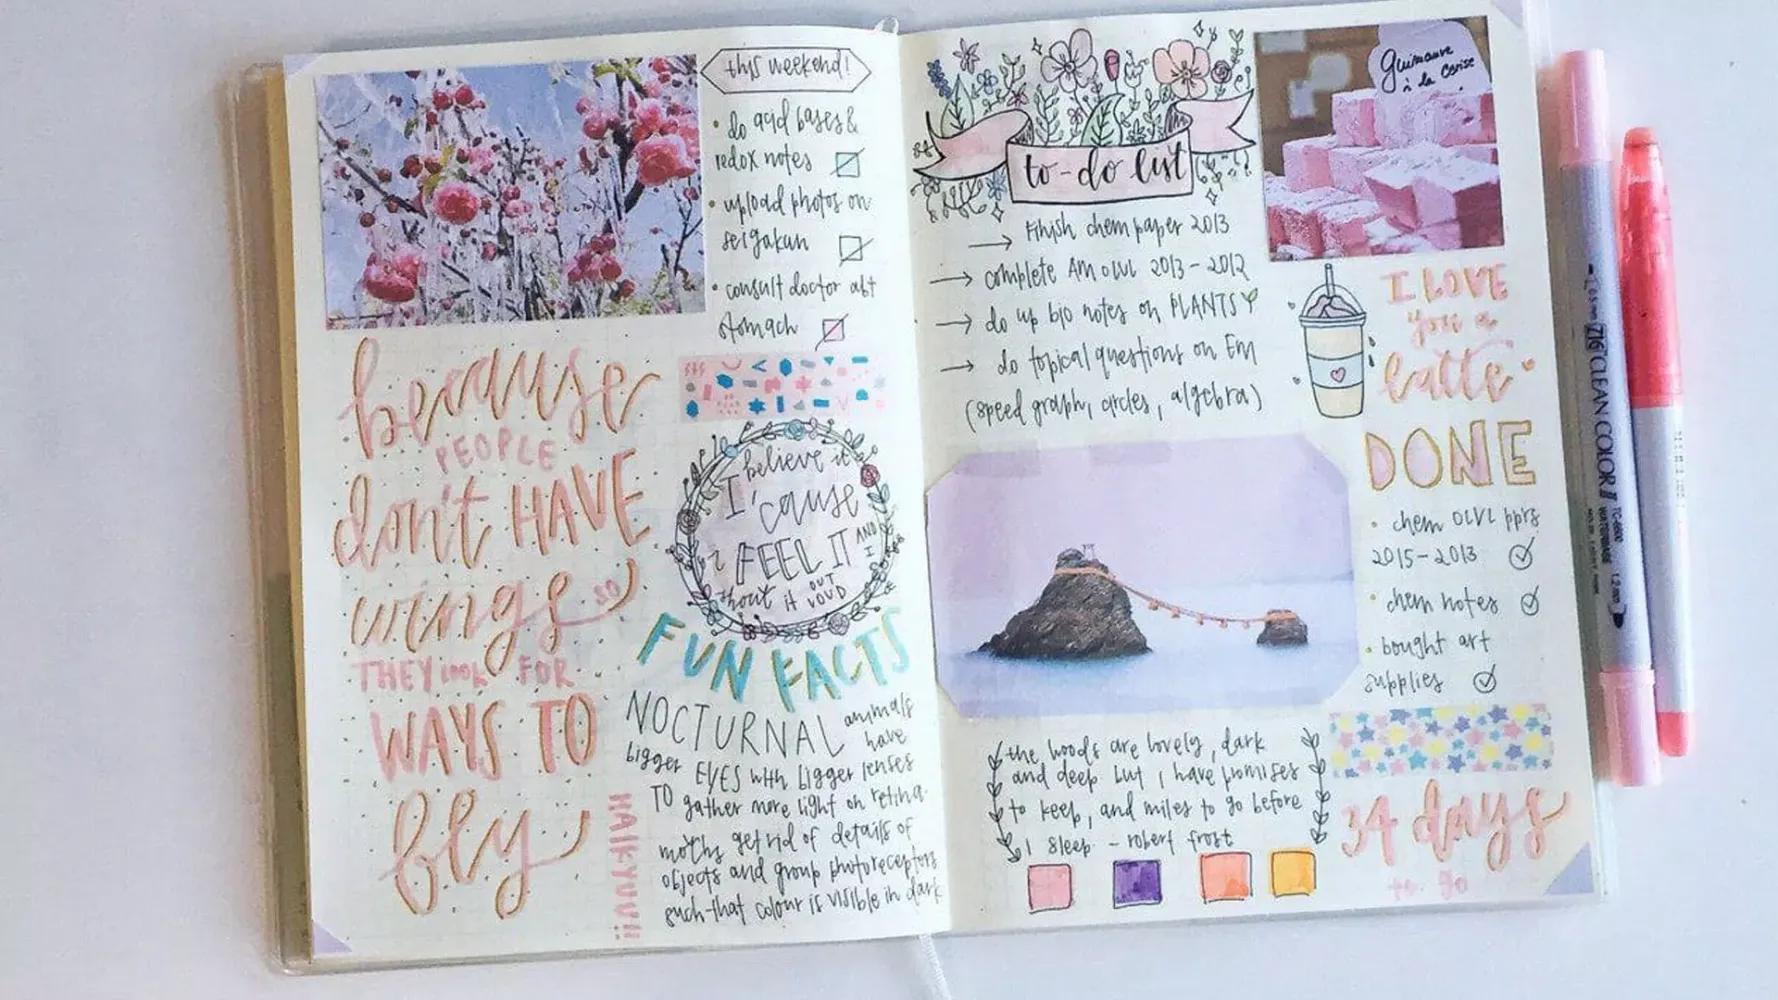 this weekend!
• do acid bases &
redox notes
• upload photos on
seigakun
• consult doctor abt
stomach
because
PEOPLE
don't HAVE
wings so
THEY look FOR
WAYS TO
fly
HAIKYUU!!
I believe it
'cause
I FEEL IT AND I
shout it OUT LOUD
FUN FACTS
NOCTURNAL animals
have
bigger EYES with bigger lenses
TO gather more light on retina.
moths get rid of details of
objects and group photoreceptors
such that colour is visible in dark
to-do list
→ Finish chem paper 2013
→ complete AM OLVL 2013-2012
→ do up bio notes on PLANTS
→ do topical questions on EM
(speed graph, circles, algebra)
Guimauve
à la Cerise
I LOVE
you a
latte
DONE
• chem OLVL pprs
2015-2013
• chem notes
• bought art
supplies
the woods are lovely, dark
and deep but I have promises
to keep, and miles to go before
I sleep - robert frost
34 days
to go
ZIG CLEAN COLOR